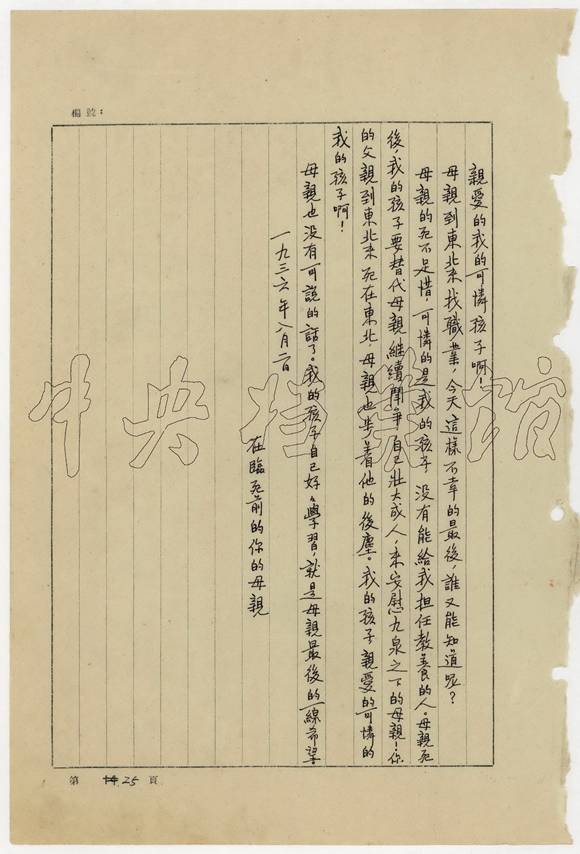 檔號：
親愛的我的可憐孩子啊！
母親到東北來找職業，今天這樣不幸的最後，誰又能知道呢？
母親的死不足惜，可憐的是我的孩子，没有能給我担任教養的人。母親死
後，我的孩子要替代母親繼續鬥争，自己壮大成人，来安慰九泉之下的母親！你
的父親到東北来死在東北，母親也步着他的後塵。我的孩子，親愛的可憐的
我的孩子啊！
母親也没有可說的話了。我的孩子自己好好學習，就是母親最後的一線希望。
一九三六年八月二日
在臨死前的你的母親
中央档案馆
第 25 頁